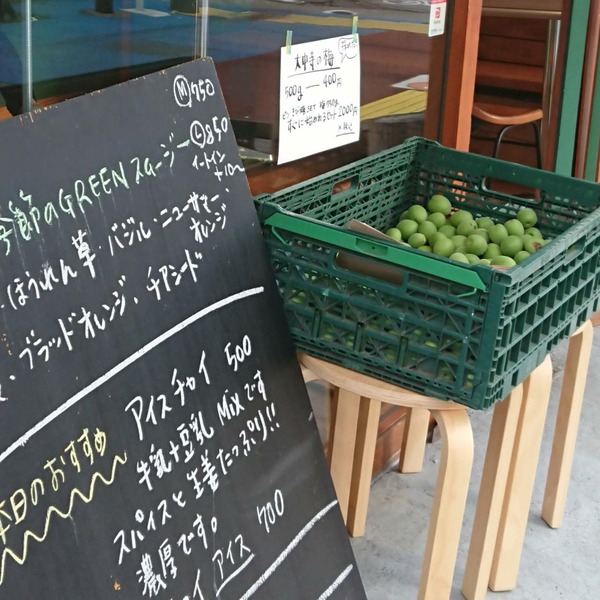 Ⓜ750
Ⓛ850
イートイン
+10
季節のGREENスムージー
ほうれん草・バジル・ニューサマー
オレンジ
・ブラッドオレンジ、チアシード
本日のおすすめ
アイスチャイ 500
牛乳+豆乳Mixです
スパイスと生姜たっぷり!!
濃厚です。
イ アイス 700
の梅
500g — 400円
2000円